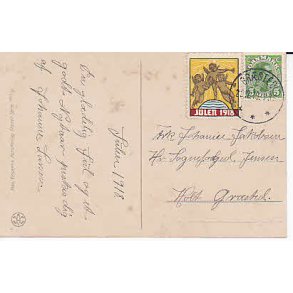 Julen 1918
En glædelig Jul og et
godt Nytaar ønskes dig
af Johanne
JULEN 1918
DANMARK
5
Frk Johanne Jakobsen
Hr. Sognefoged Jensen
Holt Græsted